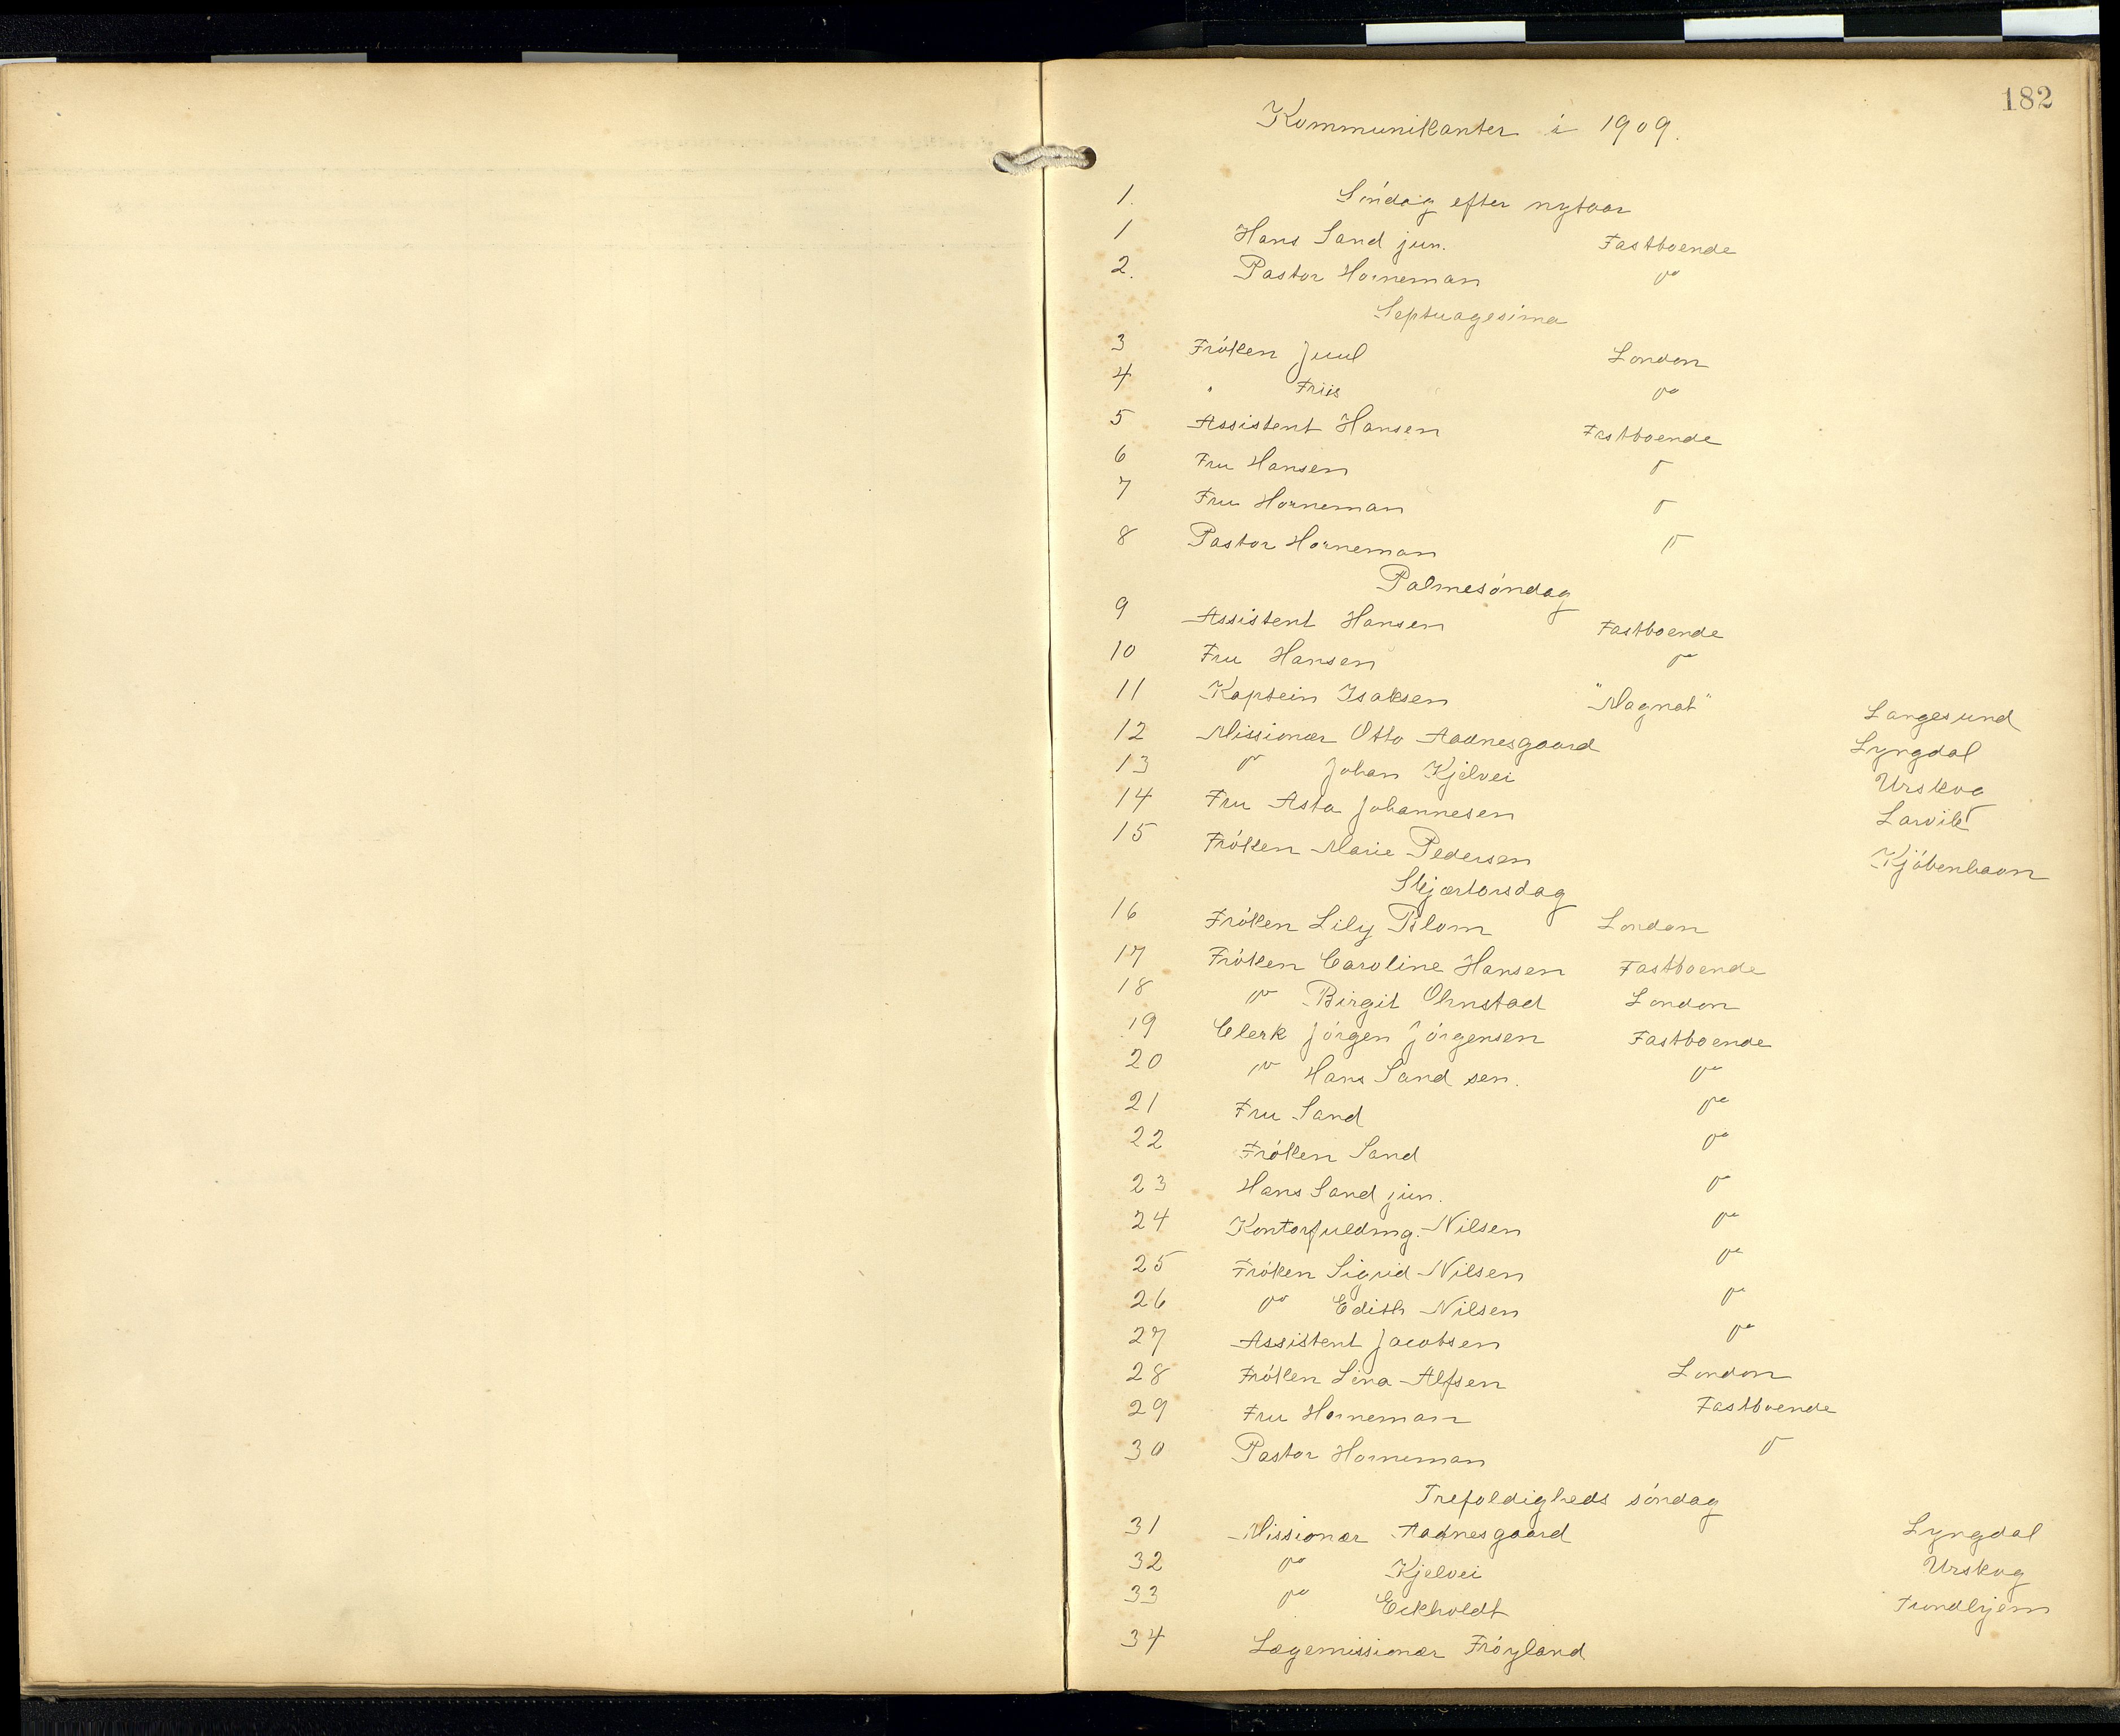 182
Kommunikanter i 1909.
1. Söndag efter nytaar
1 Hans Sand jun. Fastboende
2. Pastor Horneman do
Septuagesima
3 Fröken Juul London
4 " Friis do
5 Assistent Hansen Fastboende
6 Fru Hansen do
7 Fru Horneman do
8 Pastor Horneman do
Palmesöndag
9 Assistent Hansen Fastboende
10 Fru Hansen do
11 Kaptein Isaksen "Magnat" Langesund
12 Missionær Otto Aadnesgaard Lyngdal
13 do Johan Kjelvei Urskog
14 Fru Asta Johannesen Larvik
15 Fröken Marie Pedersen Kjöbenhavn
Skjærtorsdag
16 Fröken Lily Blom London
17 Fröken Caroline Hansen Fastboende
18 do Birgit Ohnstad London
19 Clerk Jörgen Jörgensen Fastboende
20 do Hans Sand sen. do
21 Fru Sand do
22 Fröken Sand do
23 Hans Sand jun. do
24 Kontorfuldmg. Nilsen do
25 Fröken Sigrid Nilsen do
26 do Edith Nilsen do
27 Assistent Jacobsen do
28 Fröken Lina Alfsen London
29 Fru Horneman Fastboende
30 Pastor Horneman do
Trefoldigheds söndag
31 Missionær Aadnesgaard Lyngdal
32 do Kjelvei Urskog
33 do Eckholdt Trondhjem
34 Lægemissionær Fröyland